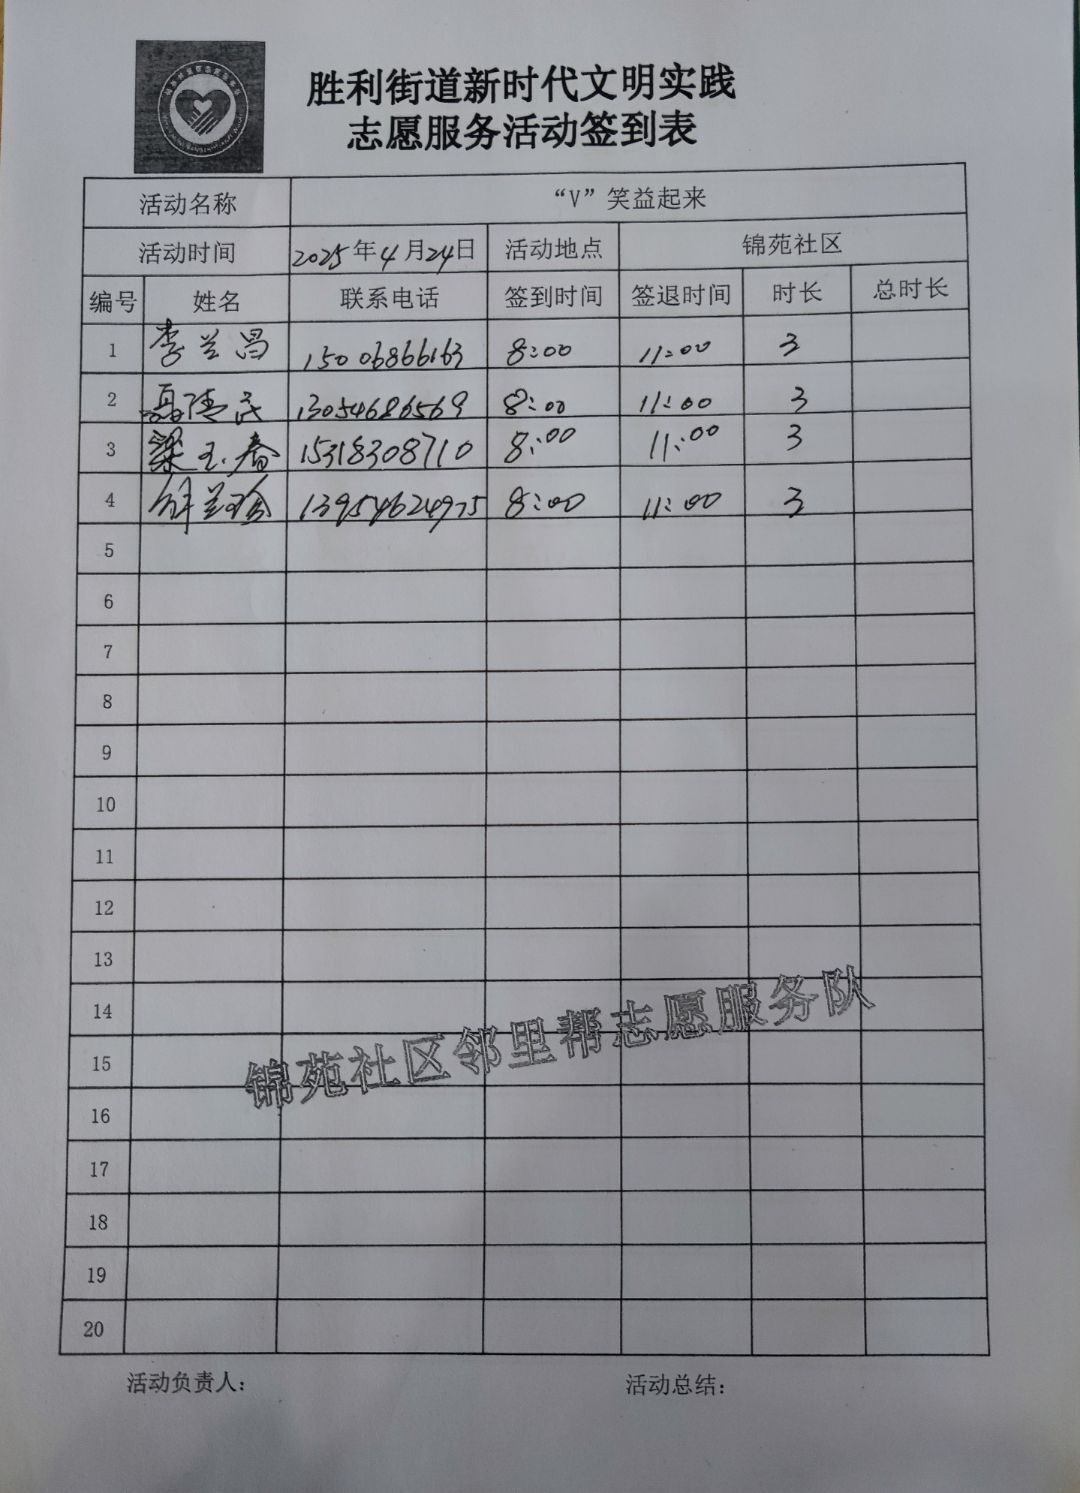 胜利街道新时代文明实践
志愿服务活动签到表
活动名称 “V”笑益起来
活动时间 2025年4月24日 活动地点 锦苑社区
编号 姓名 联系电话 签到时间 签退时间 时长 总时长
1 李兰昌 15006866163 8:00 11:00 3
2 13054686569 8:00 11:00 3
3 梁玉春 15318308710 8:00 11:00 3
4 13954624975 8:00 11:00 3
5
6
7
8
9
10
11
12
13
14
锦苑社区邻里帮志愿服务队
15
16
17
18
19
20
活动负责人: 活动总结: